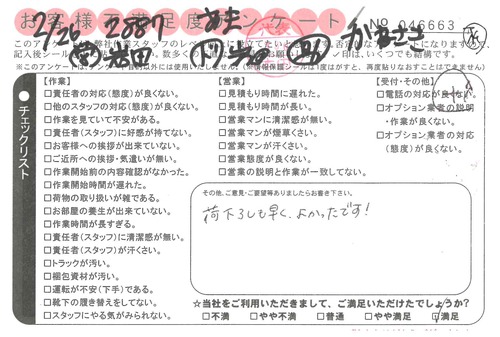 お客様満足度アンケート
№ 046663
2/26
2887
※このアンケートは
【作業】
□責任者の対応(態度)が良くない。
□他のスタッフの対応(態度)が良くない。
□作業を見ていて不安がある。
□責任者(スタッフ)に好感が持てない。
□お客様への挨拶が出来ていない。
□ご近所への挨拶・気遣いが無い。
□作業開始前の内容確認がなかった。
□作業開始時間が遅れた。
□荷物の取り扱いが雑である。
□お部屋の養生が出来ていない。
□作業時間が長すぎる。
□責任者(スタッフ)に清潔感が無い。
□責任者(スタッフ)が汗くさい。
□トラックが汚い。
□梱包資材が汚い。
□運転が不安(下手)である。
□靴下の履き替えをしてない。
□スタッフにやる気がみられない。
【営業】
□見積もり時間に遅れた。
□見積もり時間が長い。
□営業マンに清潔感が無い。
□営業マンが煙草くさい。
□営業マンが汗くさい。
□営業態度が良くない。
□営業の説明と作業が一致してない。
【受付・その他】
□電話の対応が良くない。
□オプション業者の説明
・作業が良くない。
□オプション業者の対応
(態度)が良くない。
チェックリスト
その他、ご意見・ご要望等ありましたらお書き下さい。
荷下ろしも早く、よかったです!
☆当社をご利用いただきまして、ご満足いただけたでしょうか?
□不満 □やや不満 □普通 □やや満足 □満足